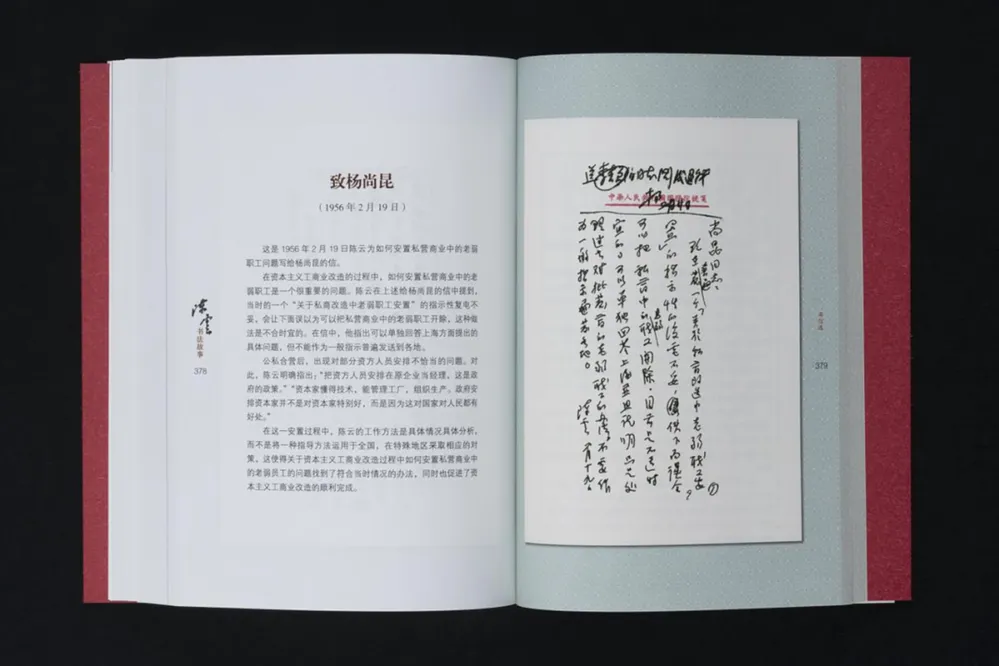 致杨尚昆
（1956 年 2 月 19 日）
这是 1956 年 2 月 19 日陈云为如何安置私营商业中的老弱
职工问题写给杨尚昆的信。
在资本主义工商业改造的过程中，如何安置私营商业中的老
弱职工是一个很重要的问题。陈云在上述给杨尚昆的信中提到，
当时的一个“关于私商改造中老弱职工安置”的指示性复电不
妥，会让下面误以为可以把私营商业中的老弱职工开除，这种做
法是不合时宜的。在信中，他指出可以单独回答上海方面提出的
具体问题，但不能作为一般指示普遍发送到各地。
公私合营后，出现对部分资方人员安排不恰当的问题。对
此，陈云明确指出：“把资方人员安排在原企业当经理，这是政
府的政策。”“资本家懂得技术，能管理工厂，组织生产。政府安
排资本家并不是对资本家特别好，而是因为这对国家对人民都有
好处。”
在这一安置过程中，陈云的工作方法是具体情况具体分析，
而不是将一种指导方法运用于全国，在特殊地区采取相应的对
策，这使得关于资本主义工商业改造过程中如何安置私营商业中
的老弱员工的问题找到了符合当时情况的办法，同时也促进了资
本主义工商业改造的顺利完成。
陈云
书法故事
378
中华人民共和国
尚昆同志：
关于私商改造中老弱职工安
可以把私营中的职工开除，目前是不适时
宜的。可以单独回答上海并且说明只是处
的老弱职工的办法，不要作
为一般指示普发各地。
陈云 二月十九日
379